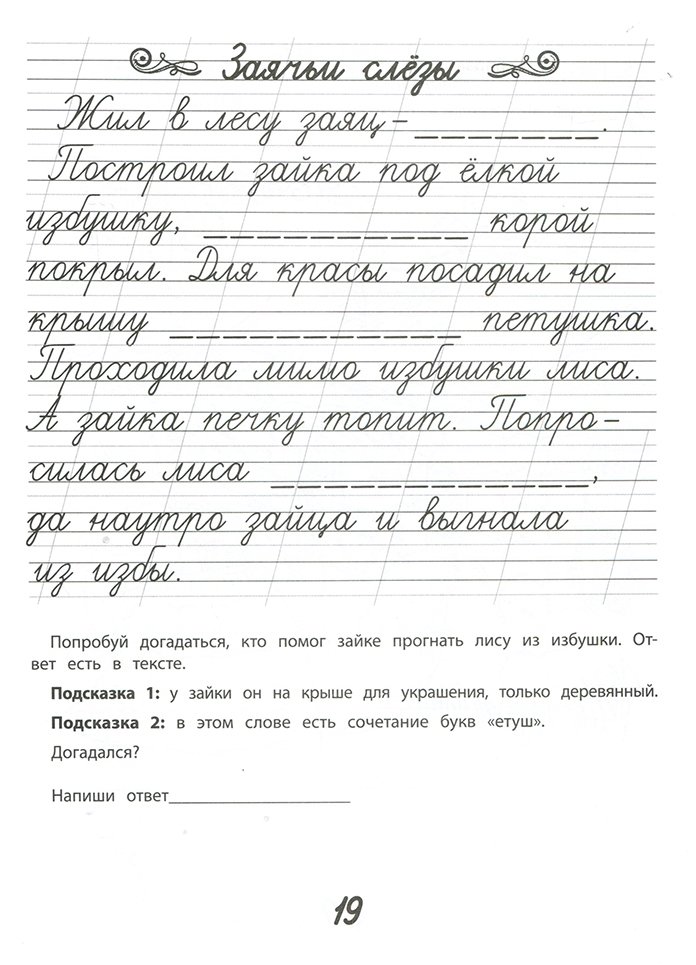 Заячьи слёзы
Жил в лесу заяц – _ _ _ _ _ _ _.
Построил зайка под ёлкой
избушку, _ _ _ _ _ _ _ _ _ _ корой
покрыл. Для красы посадил на
крышу _ _ _ _ _ _ _ _ _ _ _ петушка.
Проходила мимо избушки лиса.
А зайка печку топит. Попро–
силась лиса _ _ _ _ _ _ _ _ _ _ _ _,
да наутро зайца и выгнала
из избы.
Попробуй догадаться, кто помог зайке прогнать лису из избушки. От-
вет есть в тексте.
Подсказка 1: у зайки он на крыше для украшения, только деревянный.
Подсказка 2: в этом слове есть сочетание букв «етуш».
Догадался?
Напиши ответ____________________
19